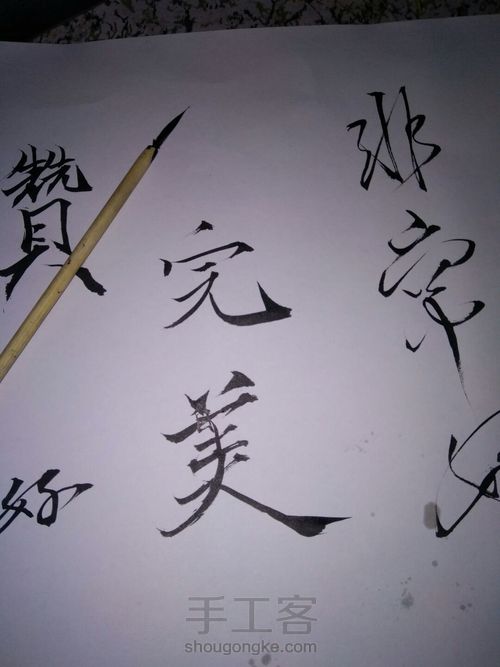 非常好
完美
贊
好
手工客
shougongke.com